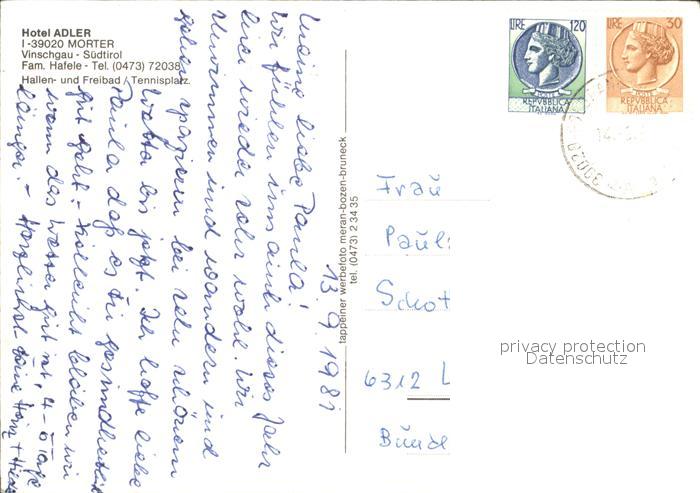 Hotel ADLER
I-39020 MORTER
Vinschgau - Südtirol
Fam. Hafele - Tel. (0473) 72038
Hallen- und Freibad / Tennisplatz.
13. 9. 1981
Meine liebe Paula!
Wir fühlen uns auch dieses Jahr
hier wieder sehr wohl. Wir
schwimmen und wandern und
gehen spazieren bei sehr schönem
Wetter bis jetzt. Ich hoffe liebe
Paula daß es Dir gesundheitlich
gut geht. - Vielleicht bleiben wir
wenn das Wetter gut ist, 4-5 Tage
länger. - Herzlichst Deine
tappeiner werbefoto meran-bozen-bruneck
tel. (0473) 2 34 35
LIRE 120
REPVBBLICA
ITALIANA
LIRE 30
POSTE
REPVBBLICA
ITALIANA
39020
Frau
Pauli
Schot
6312 L
Bünde
privacy protection
Datenschutz